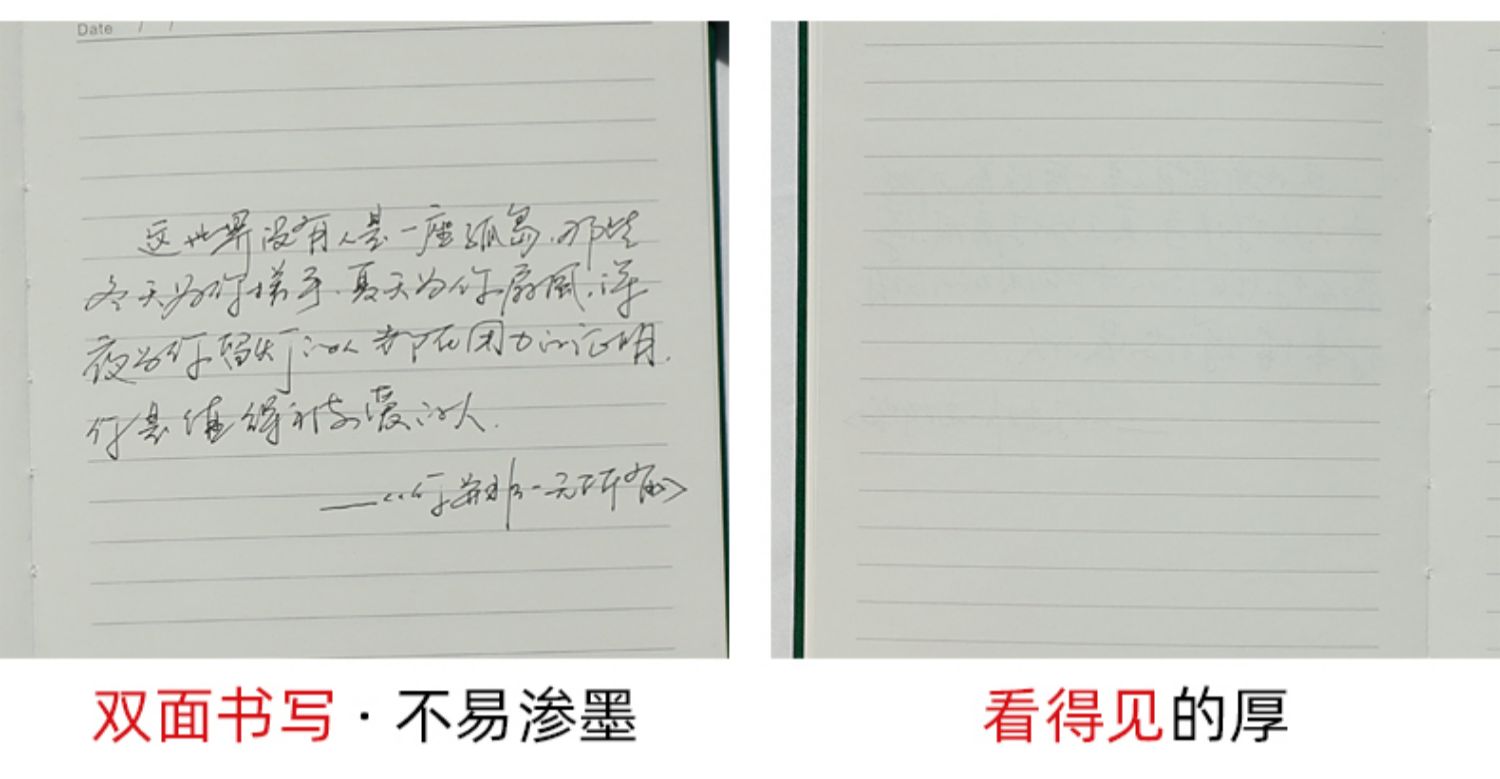 Date / /
这世界没有人是一座孤岛.那些
冬天为你搓手.夏天为你扇风.深
夜为你留灯的人 都在用力的证明.
你是值得被爱的人.
——《你并非一无所有》
双面书写·不易渗墨
看得见的厚